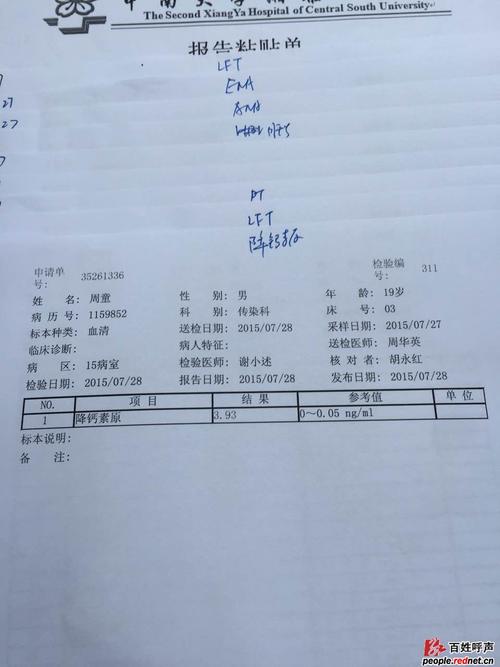 The Second XiangYa Hospital of Central South University
报告粘贴单
LFT
ENA
ANA
27
27
PT
LFT
降钙素原
申请单号: 35261336 检验编号: 311
姓 名: 周童 性 别: 男 年 龄: 19岁
病 历 号: 1159852 科 别: 传染科 床 号: 03
标本种类: 血清 送检日期: 2015/07/28 采样日期: 2015/07/27
临床诊断: 病人特征: 送检医师: 周华英
病 区: 15病室 检验医师: 谢小述 核 对 者: 胡永红
检验日期: 2015/07/28 报告日期: 2015/07/28 发布日期: 2015/07/28
NO. 项 目 结 果 参考值 单 位
1 降钙素原 3.93 0~0.05 ng/ml
标本说明:
备 注:
百姓呼声
people.rednet.cn